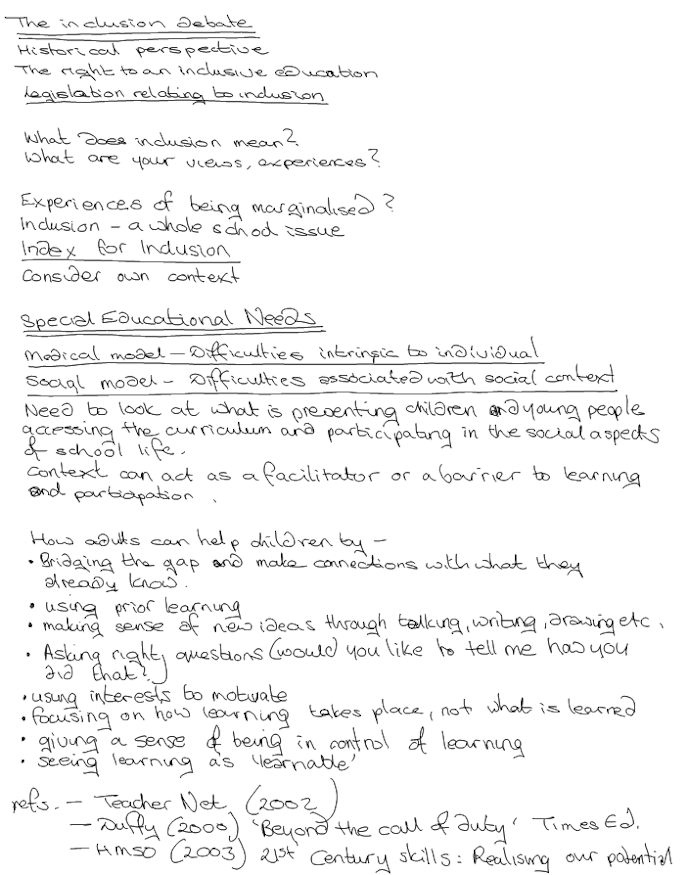 The inclusion debate
Historical perspective
The right to an inclusive education
Legislation relating to inclusion
What does inclusion mean?
What are your views, experiences?
Experiences of being marginalised?
Inclusion – a whole school issue
Index for Inclusion
Consider own context
Special Educational Needs
Medical model – Difficulties intrinsic to individual
Social model – Difficulties associated with social context
Need to look at what is preventing children and young people
accessing the curriculum and participating in the social aspects
of school life.
Context can act as a facilitator or a barrier to learning
and participation.
How adults can help children by –
• Bridging the gap and make connections with what they
already know.
• using prior learning
• making sense of new ideas through talking, writing, drawing etc.
• Asking right questions (would you like to tell me how you
did that?)
• using interests to motivate
• focusing on how learning takes place, not what is learned
• giving a sense of being in control of learning
• seeing learning as 'learnable'
refs. – Teacher Net (2002)
– Duffy (2000) 'Beyond the call of duty' Times Ed.
– HMSO (2003) 21st Century skills: Realising our potential